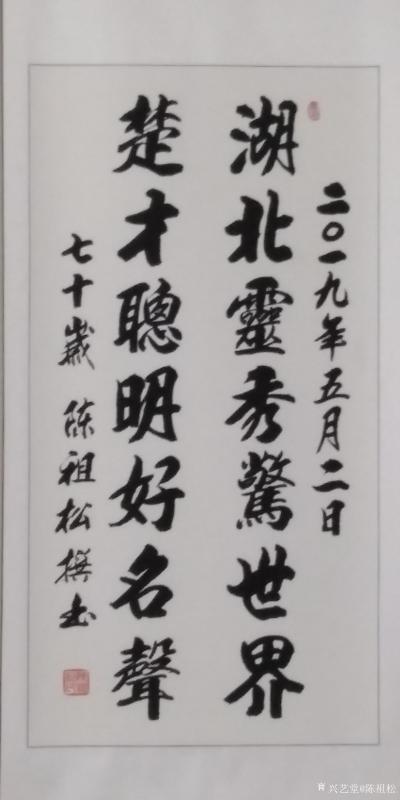 二〇一九年五月二日
湖北靈秀驚世界
楚才聰明好名聲
七十歲 陈祖松撰书
兴艺堂@陈祖松